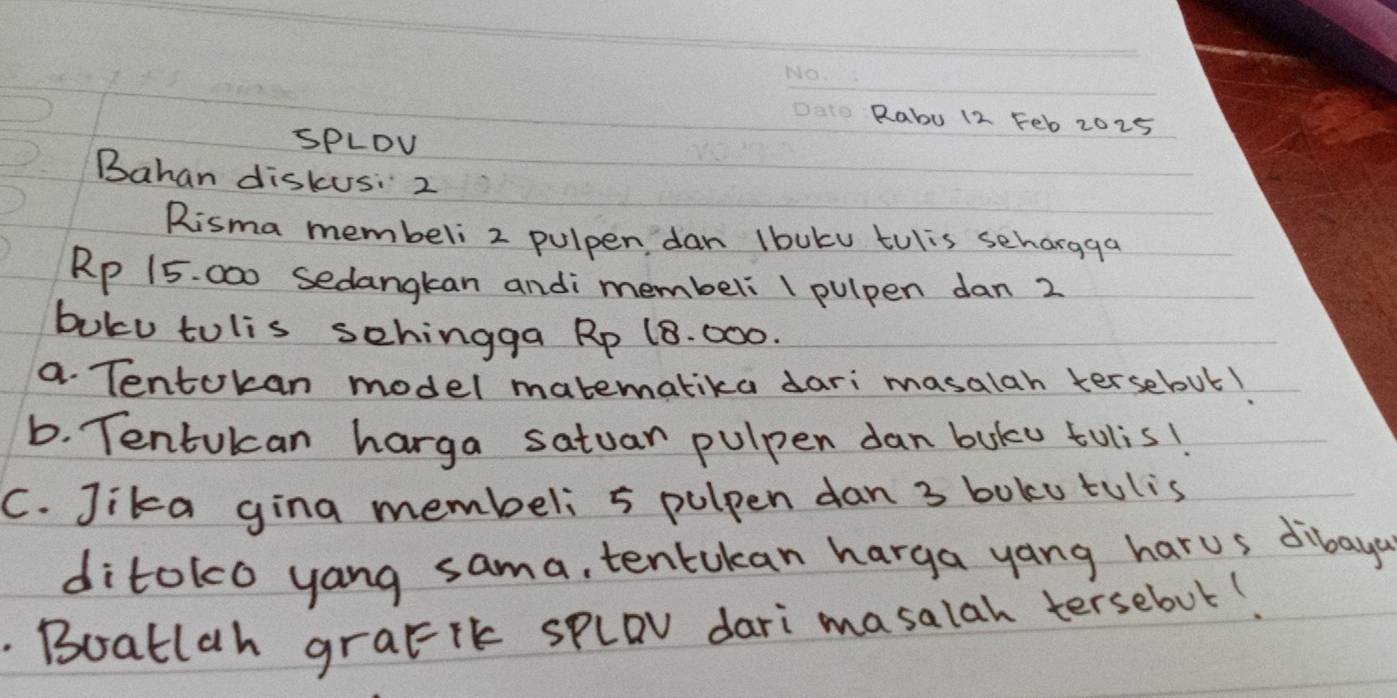 No. :
Date : Rabu 12 Feb 2025
SPLDV
Bahan diskusi 2
Risma membeli 2 pulpen dan 1 buku tulis sehargga
Rp 15.000 sedangkan andi membeli 1 pulpen dan 2
buku tulis sehingga Rp 18.000.
a. Tentukan model matematika dari masalah tersebut!
b. Tentukan harga satuan pulpen dan buku tulis!
C. Jika gina membeli 5 pulpen dan 3 buku tulis
ditoko yang sama, tentukan harga yang harus dibayar
. Buatlah grafik SPLDV dari masalah tersebut!